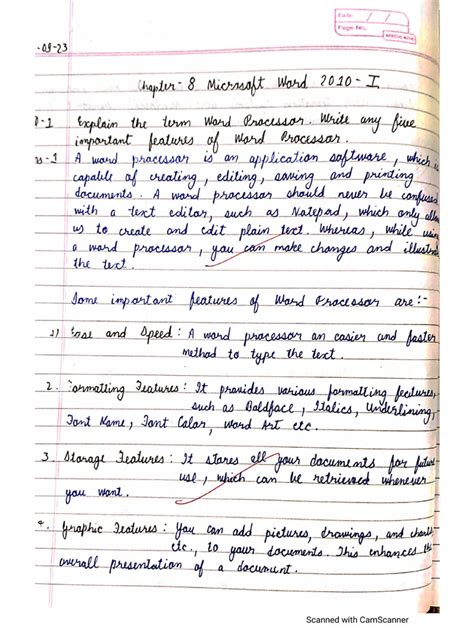 Date / /
Page No.
-08-23
Chapter - 8 Microsoft Word 2010 - I
Q-1 Explain the term Word Processor. Write any five
important features of Word Processor.
s-1 A word processor is an application software, which is
capable of creating, editing, saving and printing
documents. A word processor should never be confused
with a text editor, such as Notepad, which only allo
us to create and edit plain text. Whereas, while using
a word processor, you can make changes and illustra
the text.
Some important features of Word Processor are :-
1) Ease and Speed : A word processor an easier and faster
method to type the text.
2. Formatting Features : It provides various formatting features,
such as Boldface, Italics, Underlining,
Font Name, Font Color, Word Art etc.
3. Storage Features : It stores all your documents for future
use, which can be retrieved whenever
you want.
4. Graphic Features : You can add pictures, drawings, and charts
etc., to your documents. This enhances the
overall presentation of a document.
Scanned with CamScanner